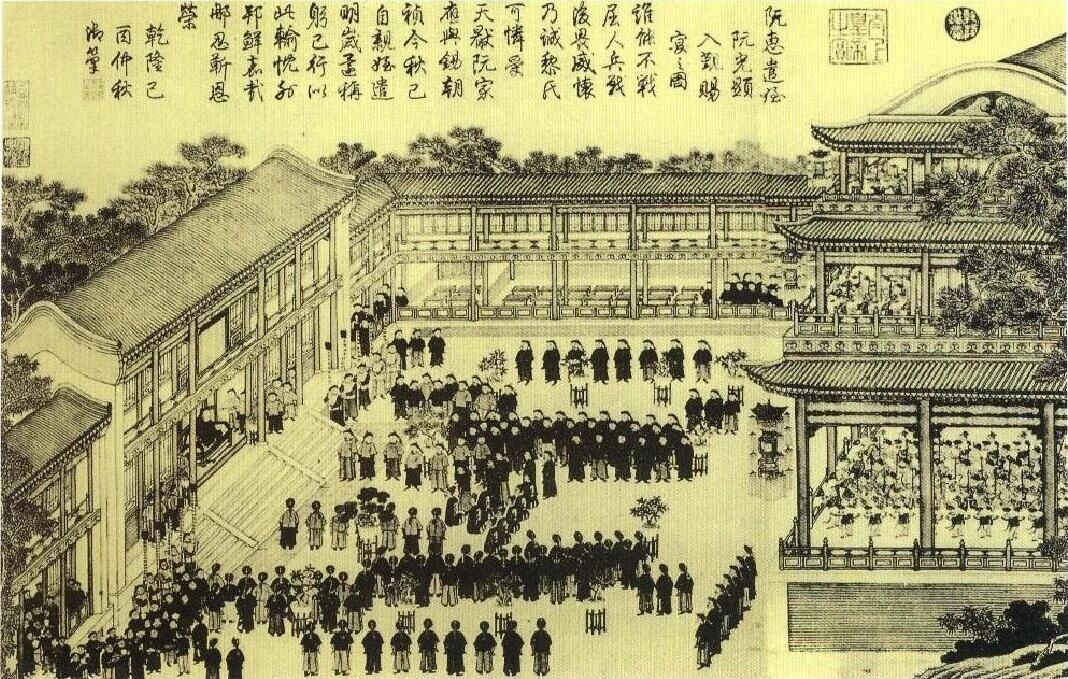 阮惠遣姪
阮光顯
入覲賜
宴之圖
誰能不戰
屈人兵戰
後畏威懷
乃誠黎氏
可憐
天厭阮家
應與錫朝
禎今秋已
自親姪遣
明歲還稱
躬己行以
此輸忱外
邦鮮嘉哉
那忍靳恩
榮
乾隆己
酉仲秋
御筆